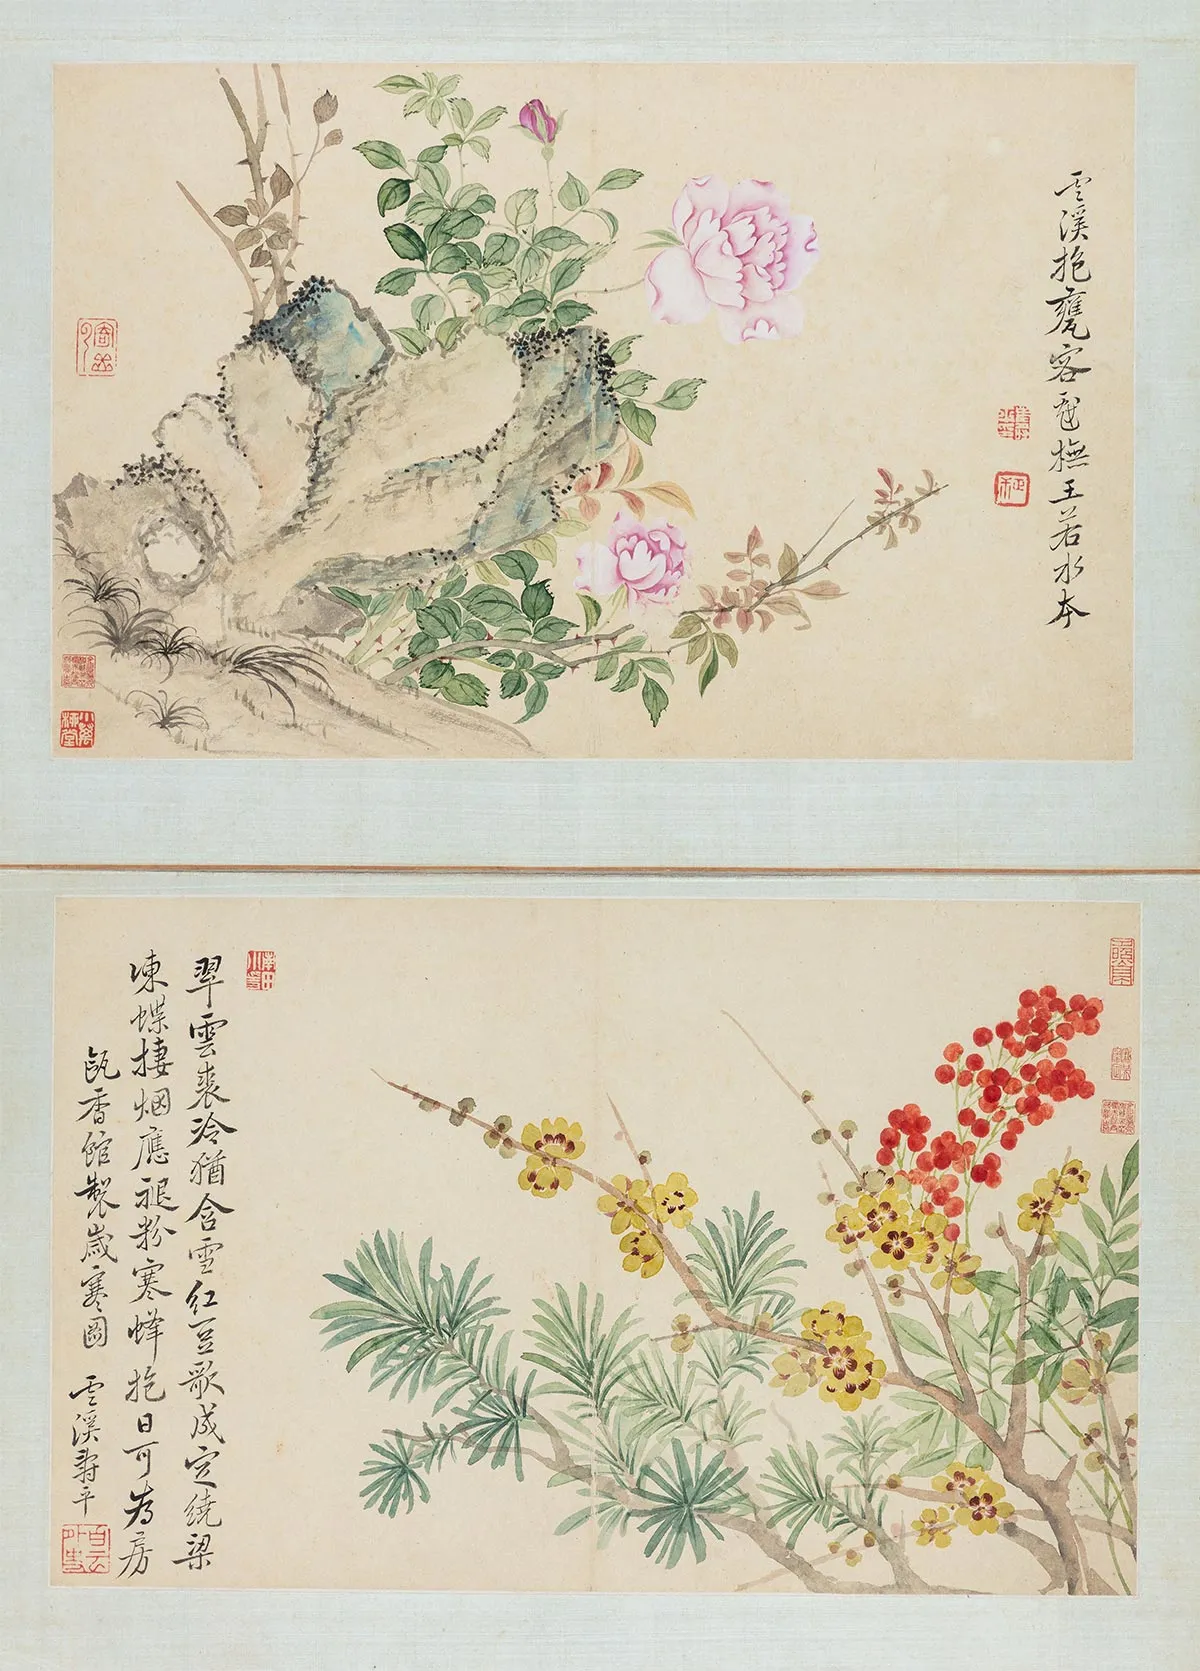 雲溪抱甕客戲橅王若水本
翠雲裘冷猶含雪紅豆歌成定繞梁
凍蝶捿烟應褪粉寒蜂抱日可為房
甌香館製歲寒圖
雲溪壽平
南田小筆
白雲外史